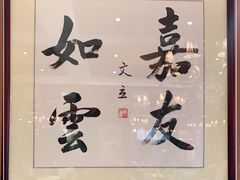 嘉友
如雲
文立